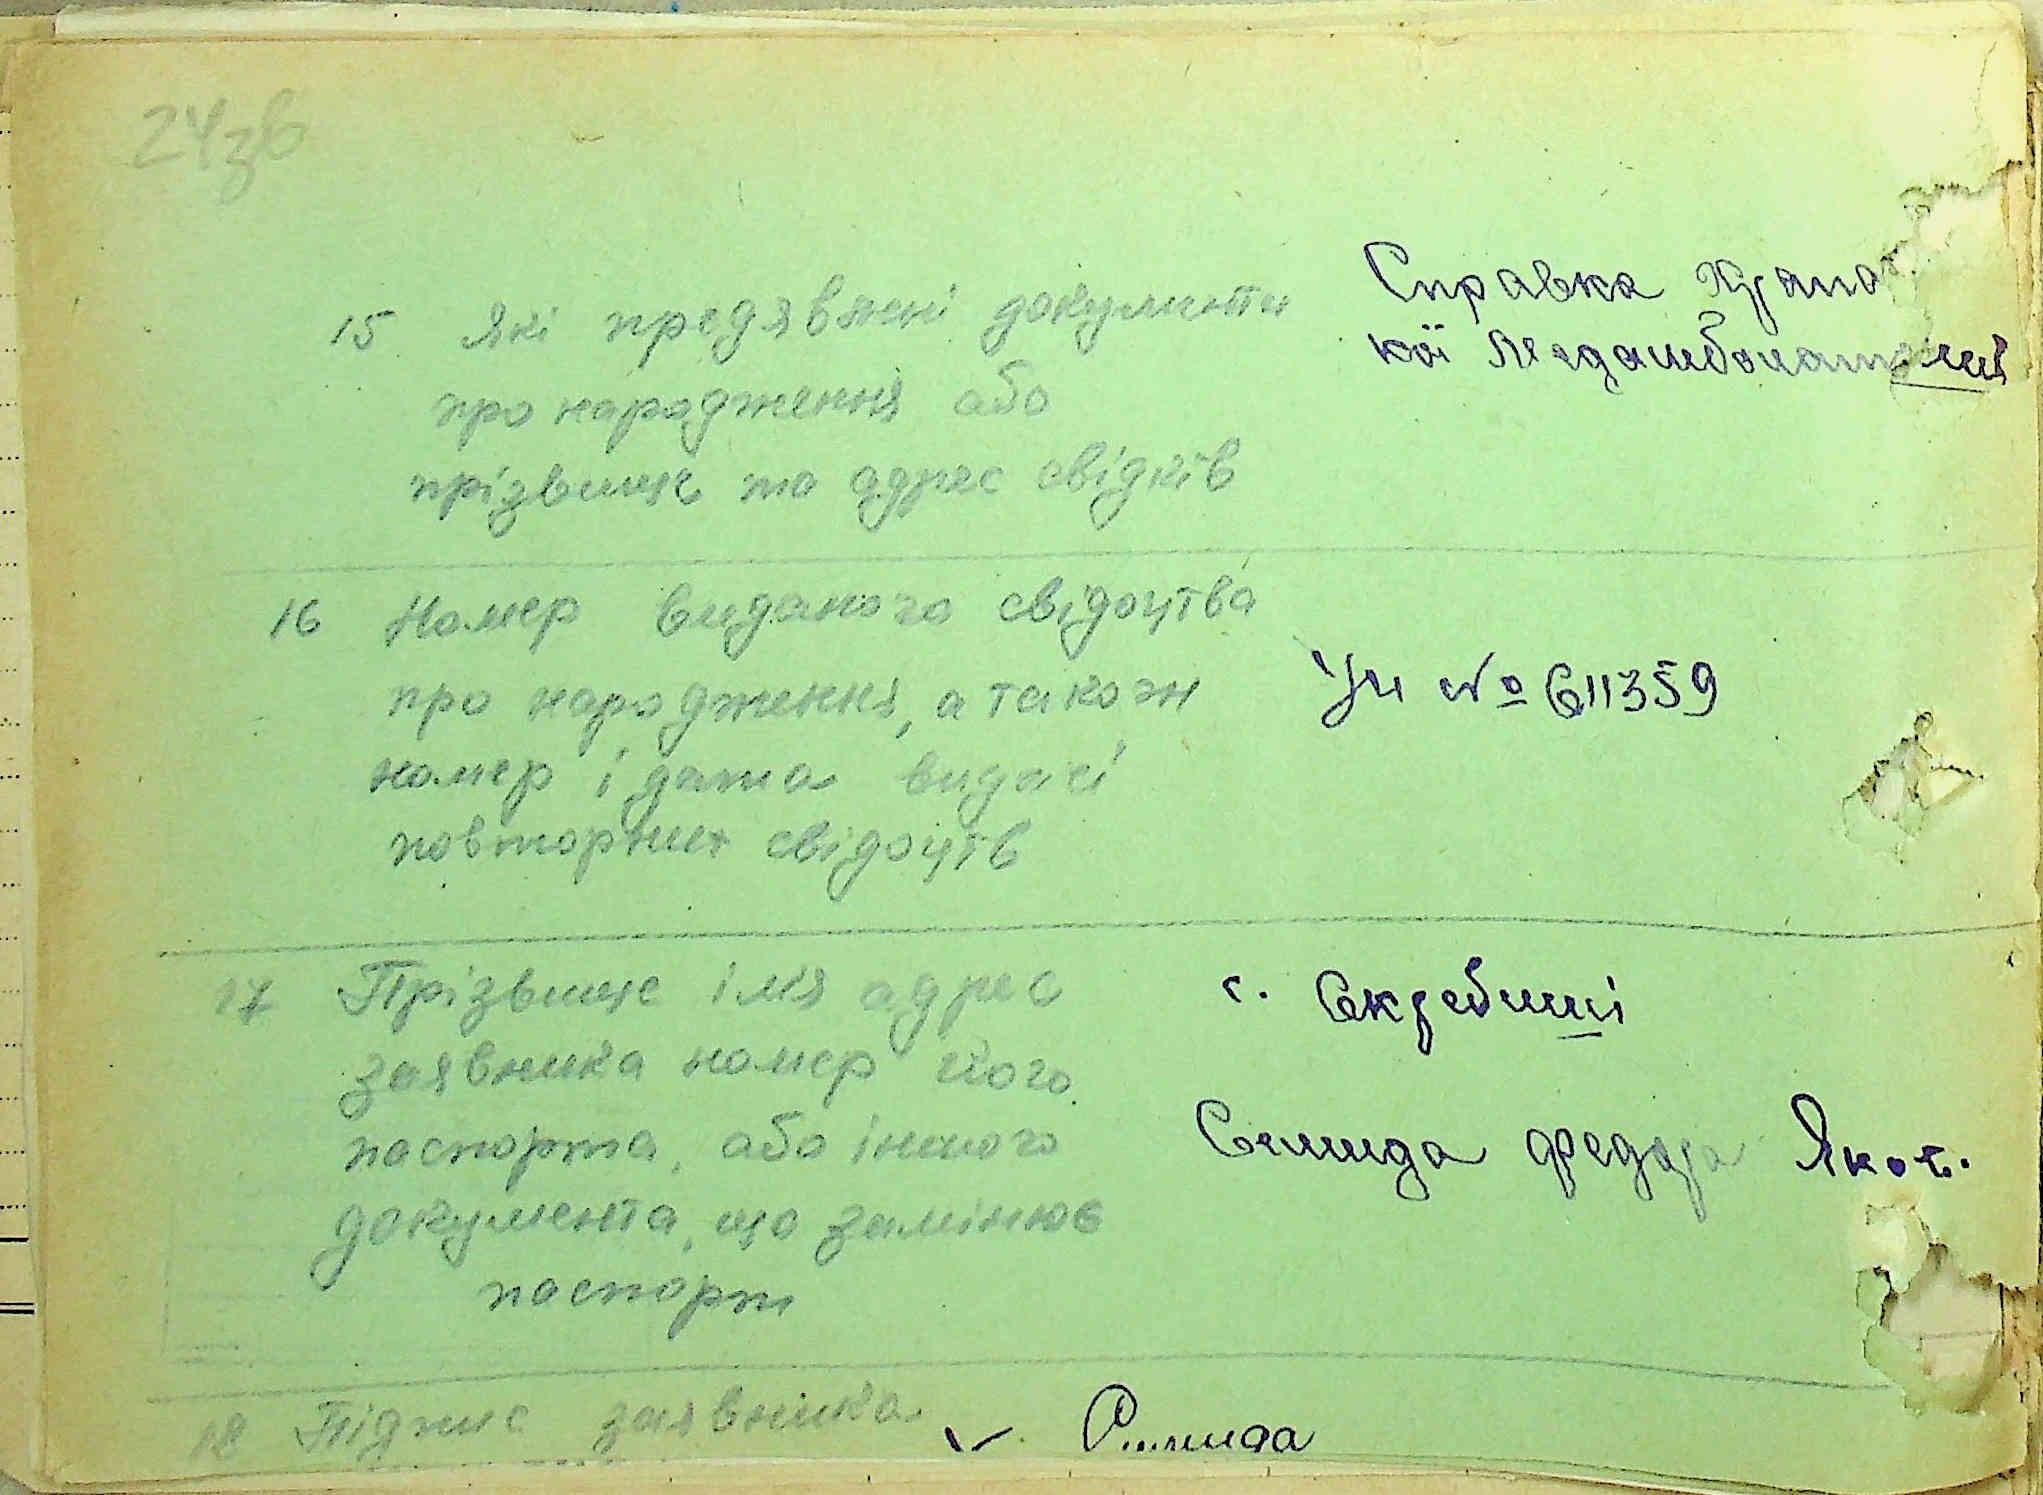 24зв
15 Які предявлені документи
про народження або
прізвище та адрес свідків
Справка
кої
16 Номер виданого свідоцтва
про народження, а також
номер і дата видачі
повторних свідоцтв
№ 611359
17 Прізвище імя адрес
заявника номер його
паспорта, або іншого
документа, що замінює
паспорт
с. Скребиші
Федора Яков.
18 Підпис заявника